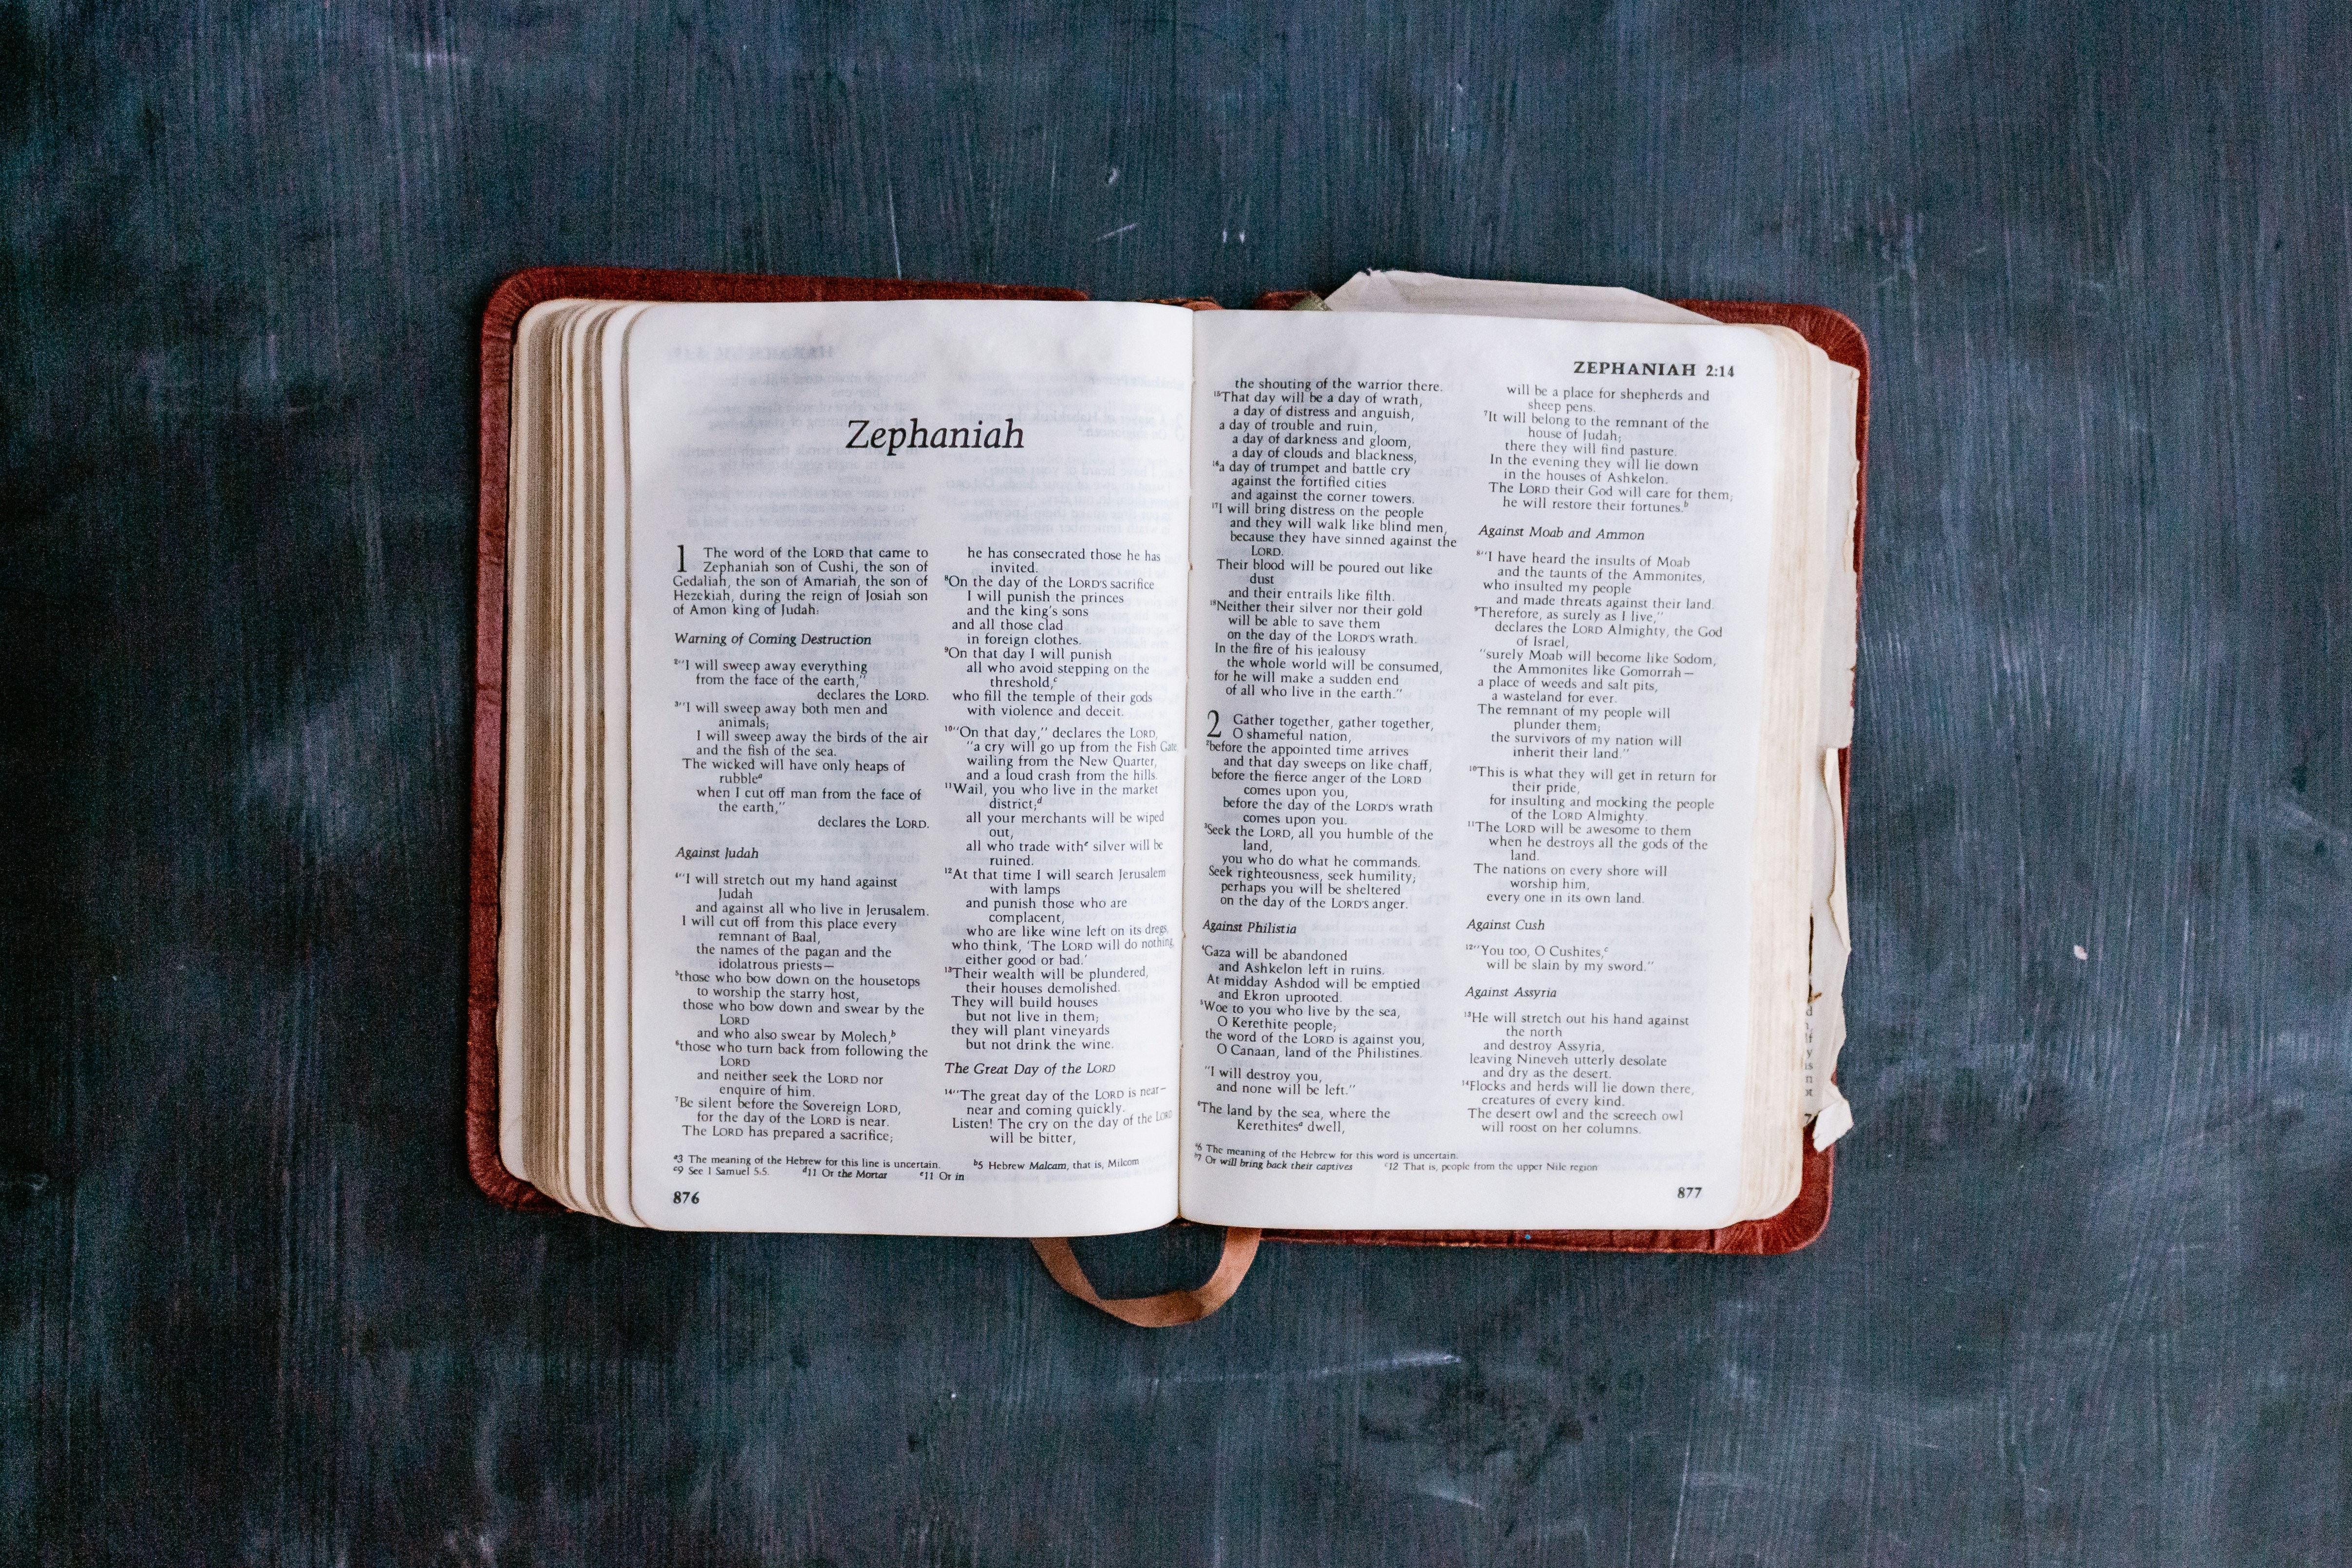 Zephaniah
1 The word of the LORD that came to
Zephaniah son of Cushi, the son of
Gedaliah, the son of Amariah, the son of
Hezekiah, during the reign of Josiah son
of Amon king of Judah:
Warning of Coming Destruction
2"I will sweep away everything
from the face of the earth,"
declares the LORD.
3"I will sweep away both men and
animals;
I will sweep away the birds of the air
and the fish of the sea.
The wicked will have only heaps of
rubble a
when I cut off man from the face of
the earth,"
declares the LORD.
Against Judah
4"I will stretch out my hand against
Judah
and against all who live in Jerusalem.
I will cut off from this place every
remnant of Baal,
the names of the pagan and the
idolatrous priests—
5those who bow down on the housetops
to worship the starry host,
those who bow down and swear by the
LORD
and who also swear by Molech, b
6those who turn back from following the
LORD
and neither seek the LORD nor
enquire of him.
7Be silent before the Sovereign LORD,
for the day of the LORD is near.
The LORD has prepared a sacrifice;
he has consecrated those he has
invited.
8On the day of the LORD'S sacrifice
I will punish the princes
and the king's sons
and all those clad
in foreign clothes.
9On that day I will punish
all who avoid stepping on the
threshold, c
who fill the temple of their gods
with violence and deceit.
10"On that day," declares the LORD,
"a cry will go up from the Fish Gate,
wailing from the New Quarter,
and a loud crash from the hills.
11Wail, you who live in the market
district; d
all your merchants will be wiped
out,
all who trade with e silver will be
ruined.
12At that time I will search Jerusalem
with lamps
and punish those who are
complacent,
who are like wine left on its dregs,
who think, 'The LORD will do nothing,
either good or bad.'
13Their wealth will be plundered,
their houses demolished.
They will build houses
but not live in them;
they will plant vineyards
but not drink the wine.
The Great Day of the LORD
14"The great day of the LORD is near—
near and coming quickly.
Listen! The cry on the day of the LORD
will be bitter,
a3 The meaning of the Hebrew for this line is uncertain. b5 Hebrew Malcam, that is, Milcom
c9 See 1 Samuel 5:5. d11 Or the Mortar e11 Or in
876
ZEPHANIAH 2:14
the shouting of the warrior there.
15That day will be a day of wrath,
a day of distress and anguish,
a day of trouble and ruin,
a day of darkness and gloom,
a day of clouds and blackness,
16a day of trumpet and battle cry
against the fortified cities
and against the corner towers.
17I will bring distress on the people
and they will walk like blind men,
because they have sinned against the
LORD.
Their blood will be poured out like
dust
and their entrails like filth.
18Neither their silver nor their gold
will be able to save them
on the day of the LORD'S wrath.
In the fire of his jealousy
the whole world will be consumed,
for he will make a sudden end
of all who live in the earth."
2 Gather together, gather together,
O shameful nation,
2before the appointed time arrives
and that day sweeps on like chaff,
before the fierce anger of the LORD
comes upon you,
before the day of the LORD'S wrath
comes upon you.
3Seek the LORD, all you humble of the
land,
you who do what he commands.
Seek righteousness, seek humility;
perhaps you will be sheltered
on the day of the LORD'S anger.
Against Philistia
4Gaza will be abandoned
and Ashkelon left in ruins.
At midday Ashdod will be emptied
and Ekron uprooted.
5Woe to you who live by the sea,
O Kerethite people;
the word of the LORD is against you,
O Canaan, land of the Philistines.
"I will destroy you,
and none will be left."
6The land by the sea, where the
Kerethites a dwell,
will be a place for shepherds and
sheep pens.
7It will belong to the remnant of the
house of Judah;
there they will find pasture.
In the evening they will lie down
in the houses of Ashkelon.
The LORD their God will care for them;
he will restore their fortunes. b
Against Moab and Ammon
8"I have heard the insults of Moab
and the taunts of the Ammonites,
who insulted my people
and made threats against their land.
9Therefore, as surely as I live,"
declares the LORD Almighty, the God
of Israel,
"surely Moab will become like Sodom,
the Ammonites like Gomorrah—
a place of weeds and salt pits,
a wasteland for ever.
The remnant of my people will
plunder them;
the survivors of my nation will
inherit their land."
10This is what they will get in return for
their pride,
for insulting and mocking the people
of the LORD Almighty.
11The LORD will be awesome to them
when he destroys all the gods of the
land.
The nations on every shore will
worship him,
every one in its own land.
Against Cush
12"You too, O Cushites, c
will be slain by my sword."
Against Assyria
13He will stretch out his hand against
the north
and destroy Assyria,
leaving Nineveh utterly desolate
and dry as the desert.
14Flocks and herds will lie down there,
creatures of every kind.
The desert owl and the screech owl
will roost on her columns.
a6 The meaning of the Hebrew for this word is uncertain.
b7 Or will bring back their captives c12 That is, people from the upper Nile region
877